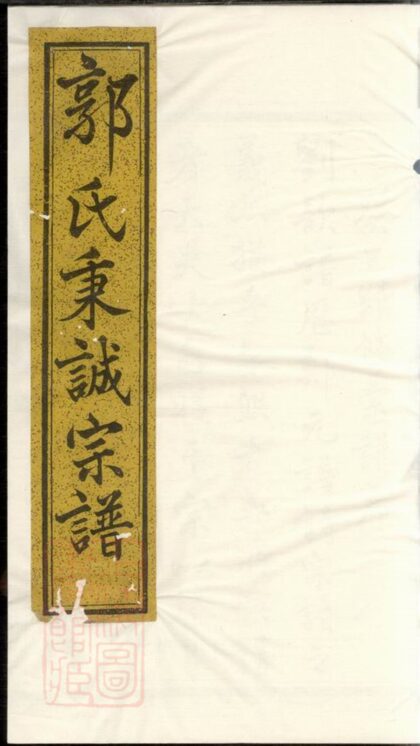 郭氏秉誠宗譜